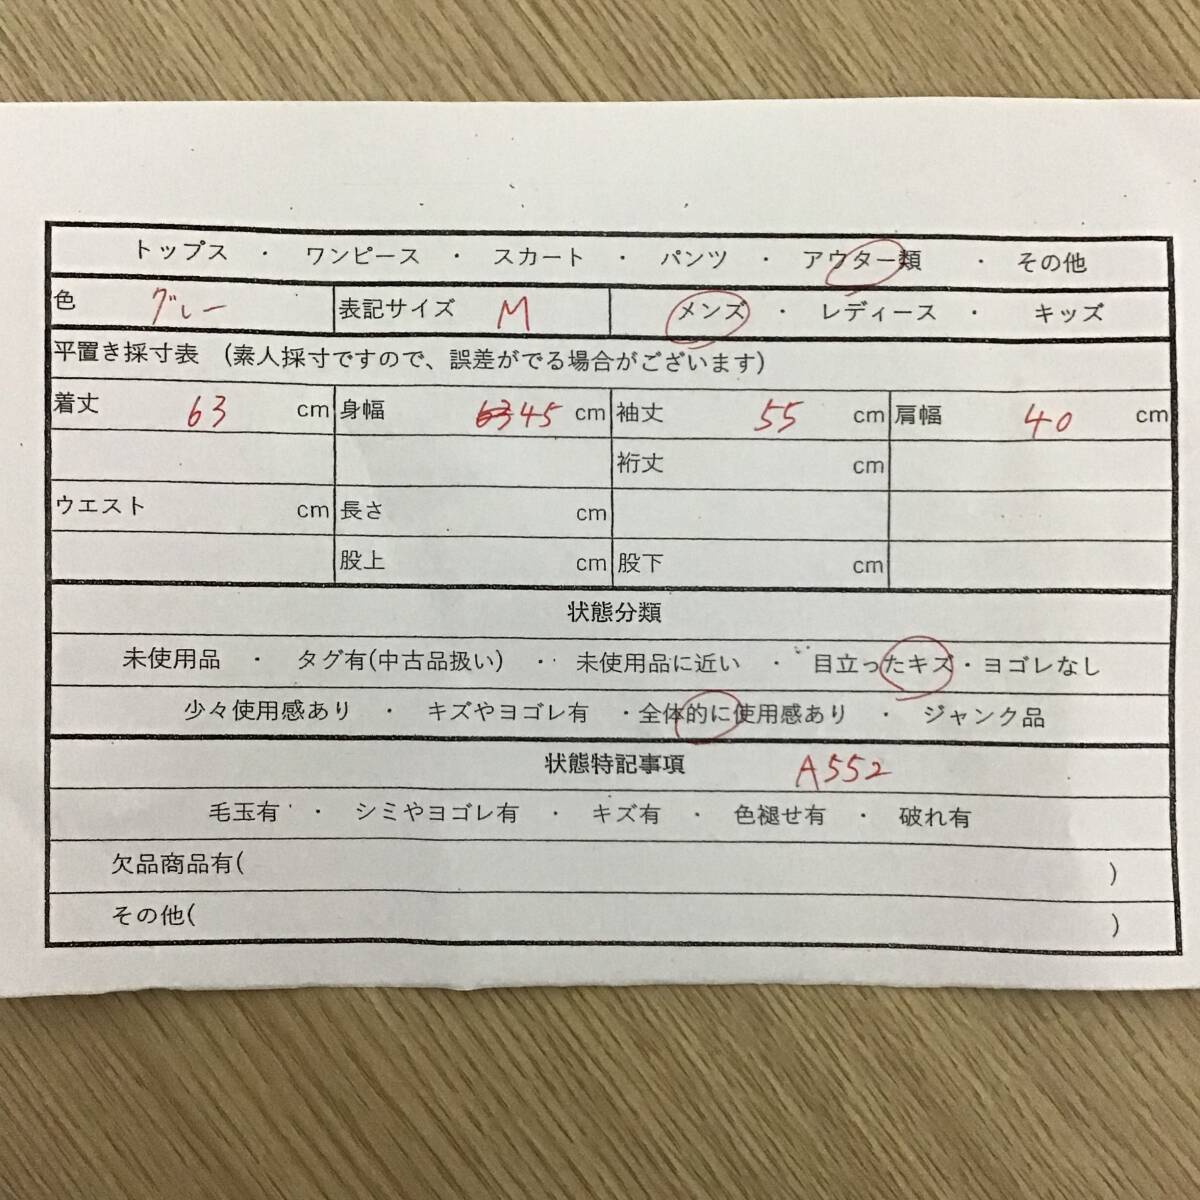 トップス ・ ワンピース ・ スカート ・ パンツ ・ アウター類 ・ その他
色 グレー 表記サイズ M メンズ ・ レディース ・ キッズ
平置き採寸表 (素人採寸ですので、誤差がでる場合がございます)
着丈 63 cm 身幅 63 45 cm 袖丈 55 cm 肩幅 40 cm
裄丈 cm
ウエスト cm 長さ cm
股上 cm 股下 cm
状態分類
未使用品 ・ タグ有(中古品扱い) ・ 未使用品に近い ・ 目立ったキズ・ヨゴレなし
少々使用感あり ・ キズやヨゴレ有 ・全体的に使用感あり ・ ジャンク品
状態特記事項 A552
毛玉有 ・ シミやヨゴレ有 ・ キズ有 ・ 色褪せ有 ・ 破れ有
欠品商品有( )
その他( )